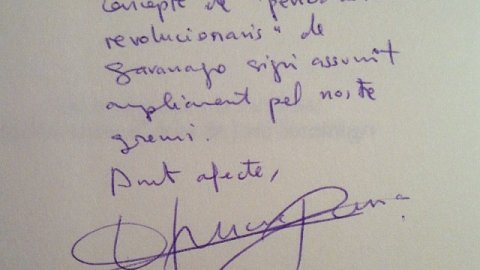 concepte de "
revolucionaris" de
Saramago sigui assumit
àmpliament pel nostre
gremi.
Amb afecte,